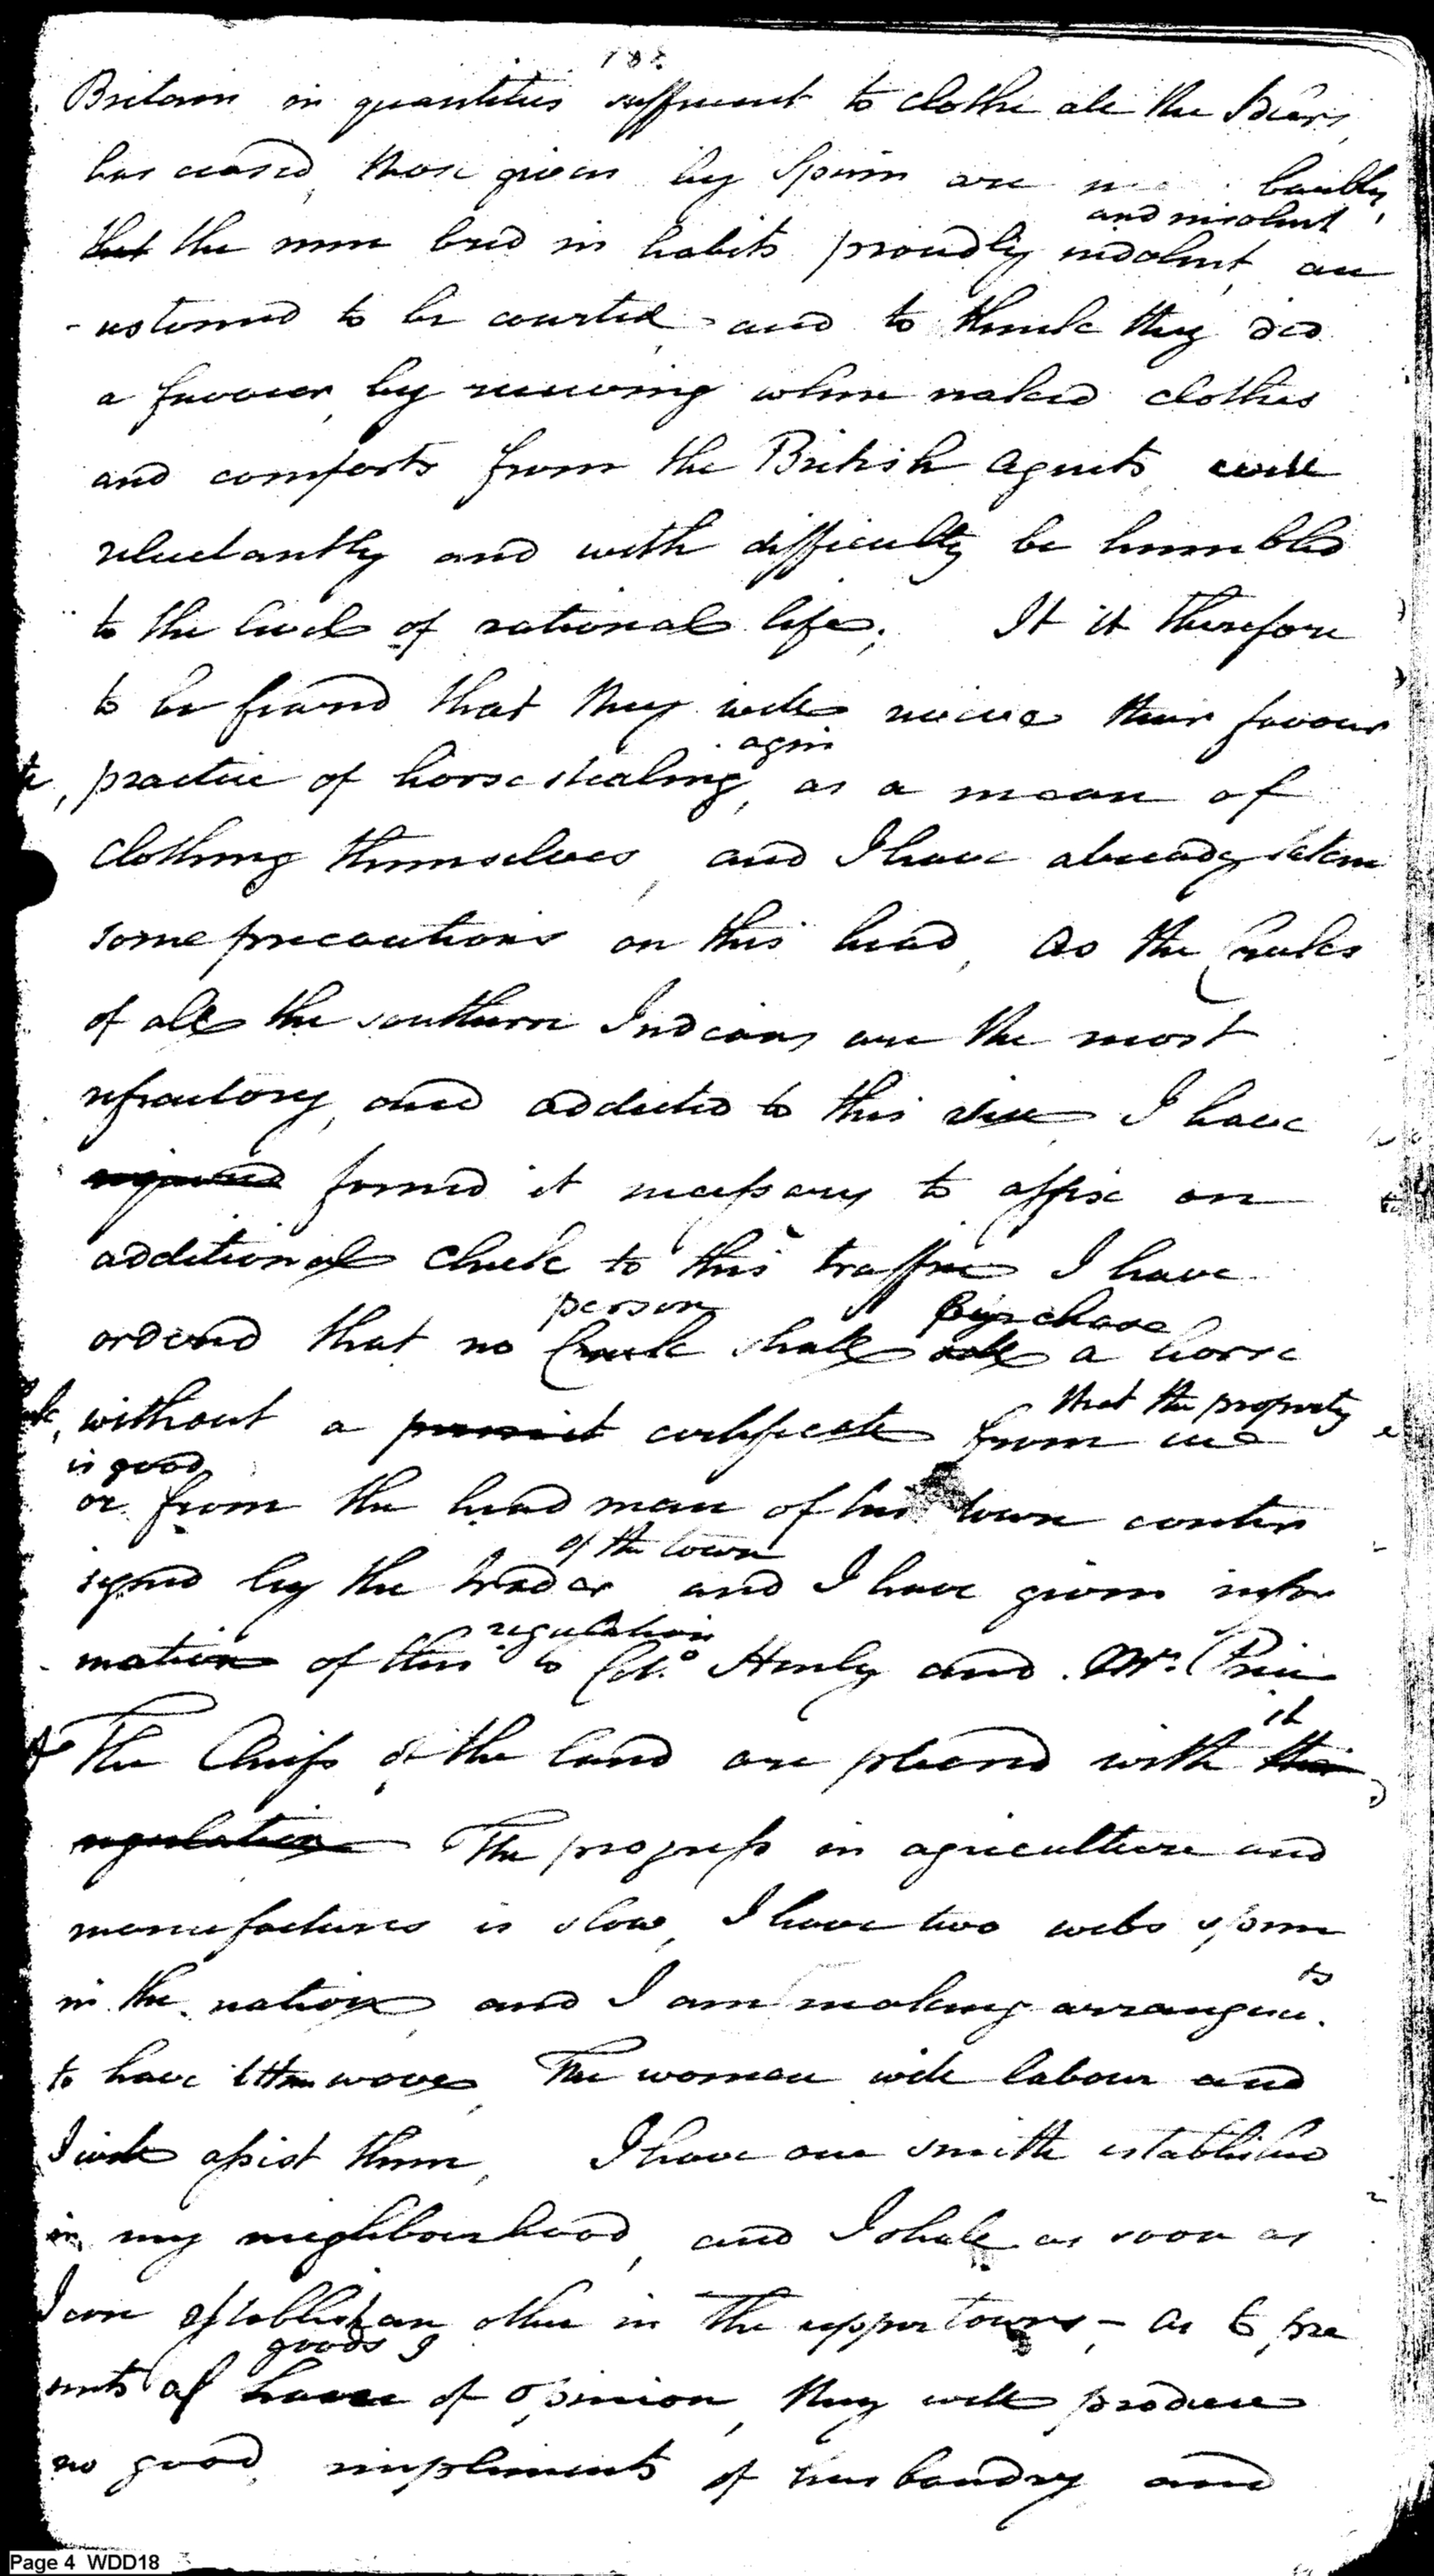 Britain in quantities sufficient to clothe all the Idlers,
has ceased, those given by Spain are
and insolent
that the men bred in habits proudly indolent, acc
-ustomed to be courted and to think they did
a favour, by receiving when naked clothes
and comforts from the British agents, will
reluctantly and with difficulty be humbled
to the level of rational life. It it therefore
to be feared that they will revive their favour
again
te, practice of horse stealing, as a mean of
clothing themselves, and I have already taken
some precautions on this head, as the Creeks
of all the southern Indians are the most
refractory, and addicted to this vice, I have
found it necessary to affix an
additional check to this traffic I have
person purchase
ordered that no Creek shall sell a horse
that the property
without a permit certificate from me
is good
or from the head man of his town counter
of the town
signed by the trader and I have given infor
regulation
-mation of this to Col.o Henly and Mr. Price
it
The Chiefs of the land are pleased with this
regulation The progress in agriculture and
manufactures is slow, I have two webs spun
ts
in the nation, and I am making arrangem.
to have them wove, The women will labour and
I will assist them, I have one smith established
in my neighbourhood, and I shall as soon as
I can establish an other in the upper towns - as to pre
goods I
sents of have of opinion, they will produce
no good, impliments of husbandry and
Page 4 WDD18